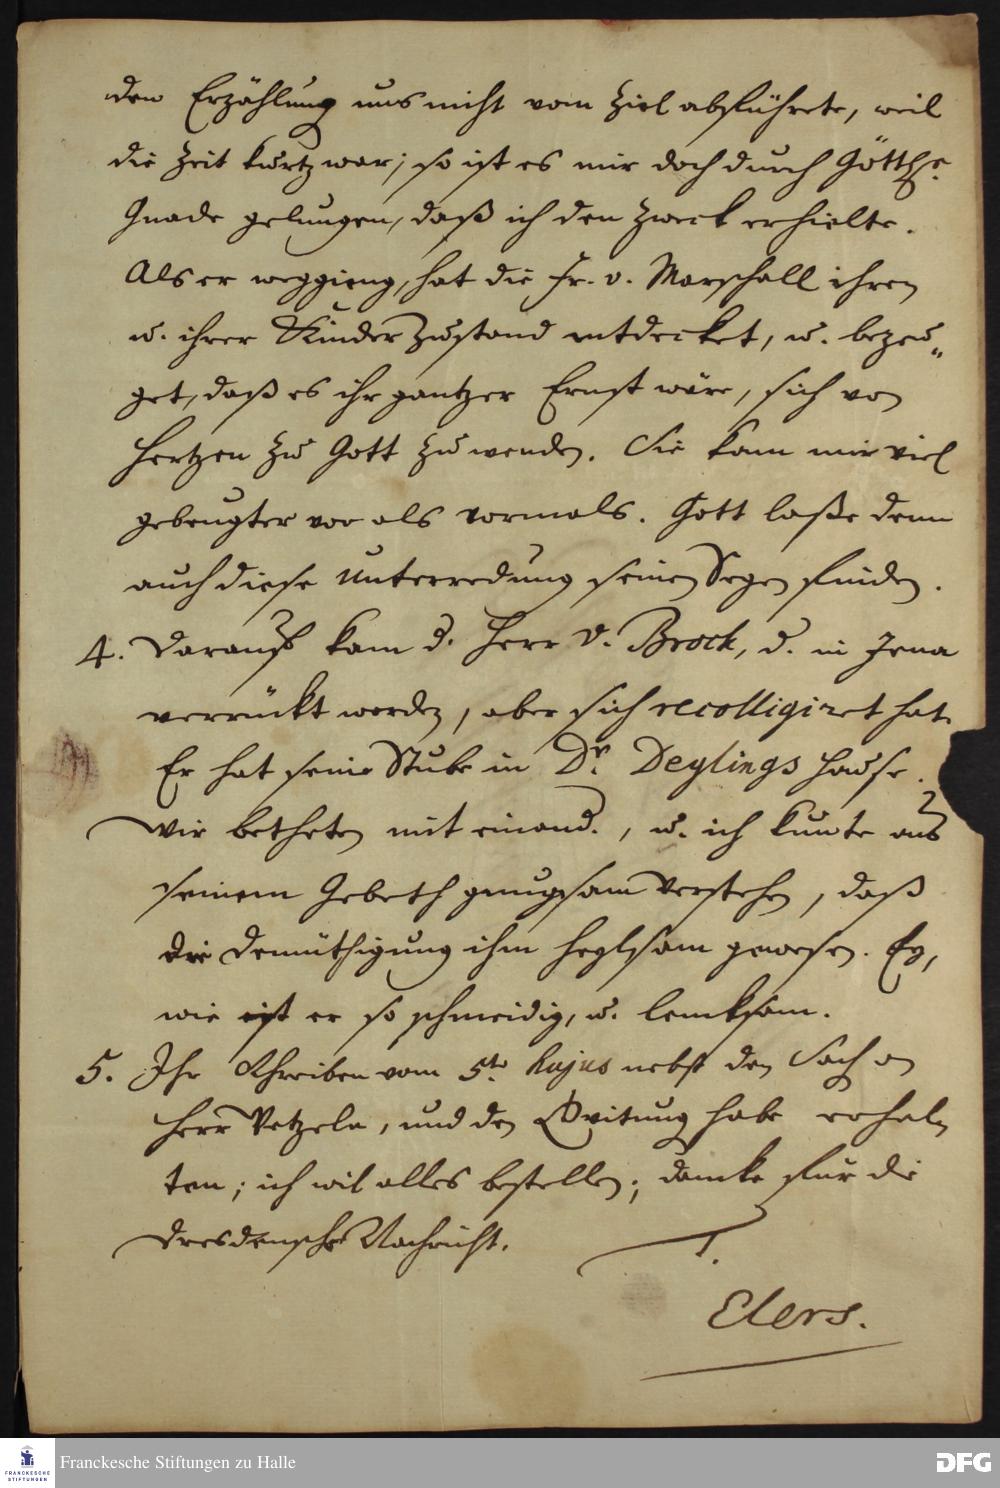 den Erzählung uns nicht vom Ziel abführete, weil
die Zeit kurtz war; so ist es mir doch durch Göttl.
Gnade gelungen, daß ich den Zweck erhielte.
Als er weggieng, hat die Fr. v. Marschall ihren
u. ihrer Kinder Zustand entdecket, u. bezeu„
get, daß es ihr gantzer Ernst wäre, sich von
Hertzen zu Gott zu wenden. Sie kam mir viel
gebeugter vor als vormals. Gott laße denn
auch diese Unterredung seinen Segen finden.
4. Darauf kam d. Herr v. Brock, d. in Jena
verrückt worden, aber sich recolligiret hat.
Er hat seine Stube in Dr. Deylings Hause.
Wir betheten mit einand., u. ich kunte aus
seinem Gebeth gnugsam verstehen, daß
die Demüthigung ihm heylsam gewesen. Ey,
wie ist er so schmeidig, u. lencksam.
5. Ihr Schreiben vom 5te hujus nebst den Sachen
Herr Vetzeln, und den Qvitung habe erhal„
ten; ich wil alles bestellen; dancke für die
Dresdensche Nachricht.
Elers.
Franckesche Stiftungen zu Halle
FRANCKESCHE
STIFTUNGEN
DFG